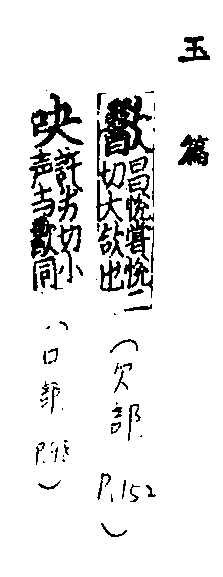 玉篇
歠昌悅嘗悅二
切大欱也
(欠部 P.152)
吷許劣切小
声与歠同
(口部 P. )